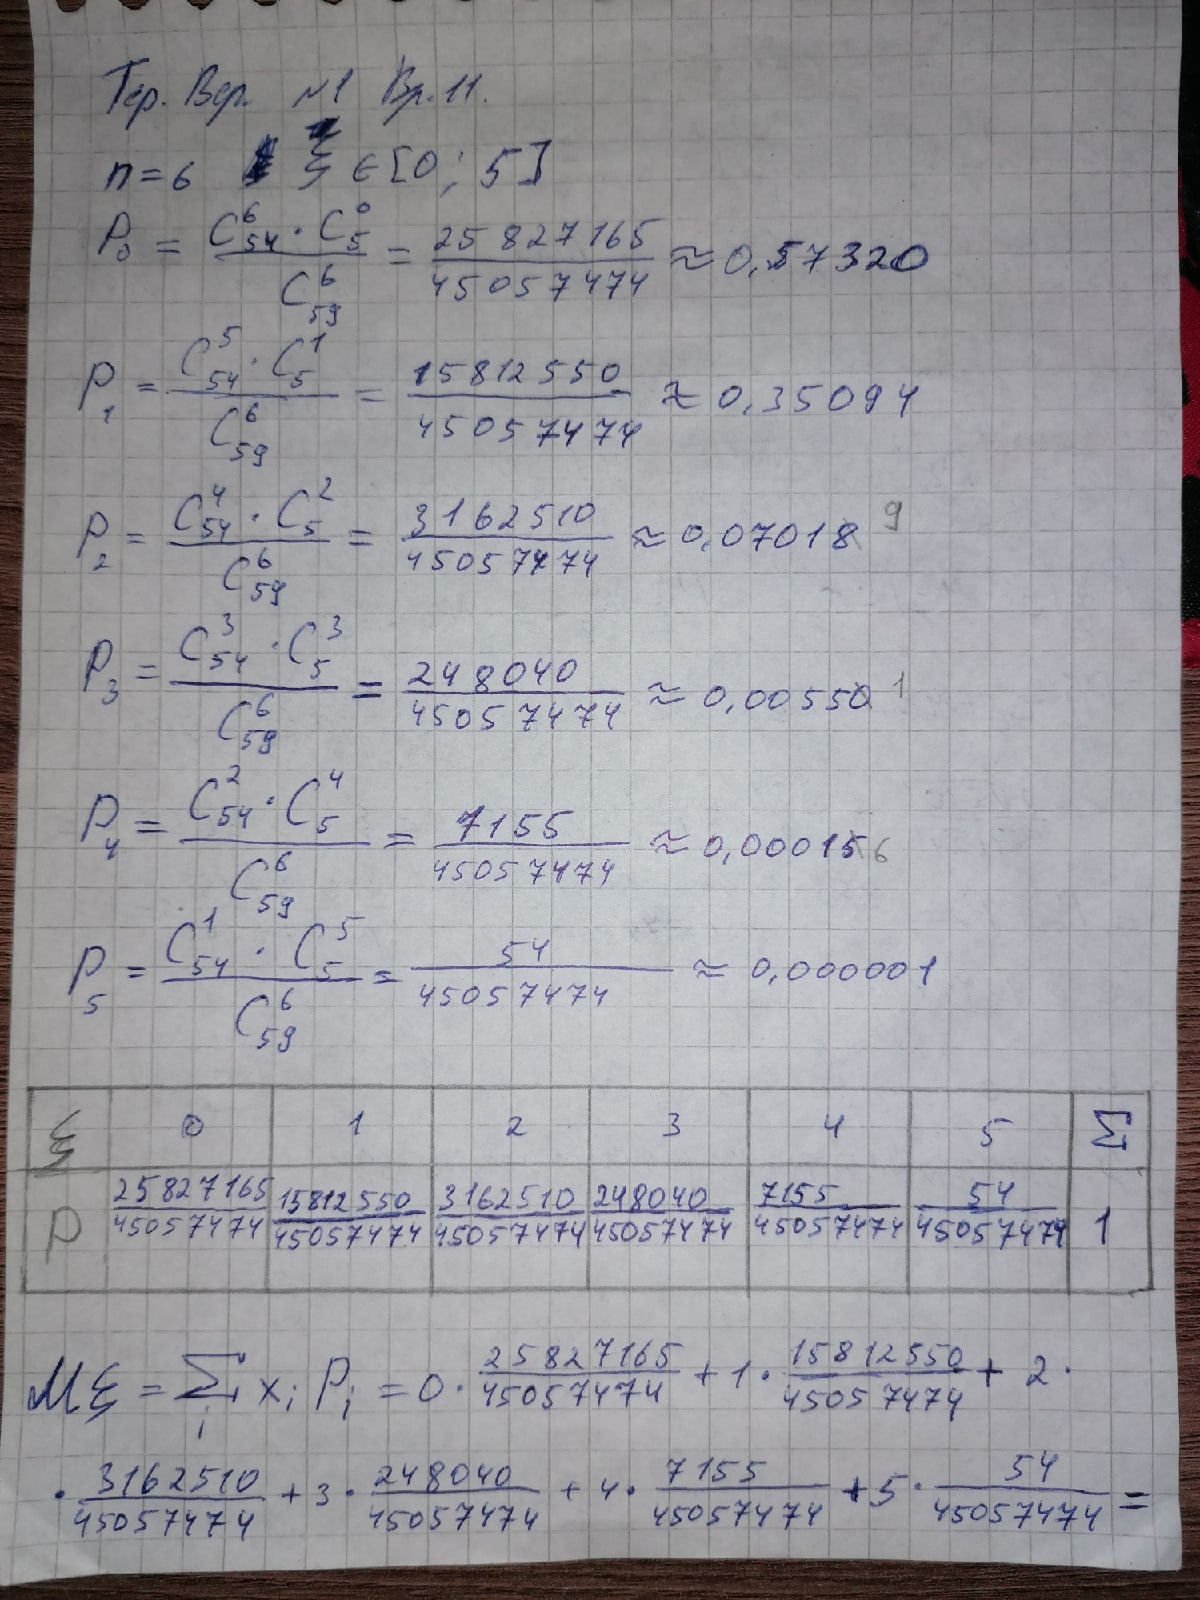 Тер. Вер. №1 Вр.11.
n=6 ξ ∈[0; 5]
P₀ = C⁶₅₄ · C⁰₅ / C⁶₅₉ = 25827165 / 45057474 ≈ 0,57320
P₁ = C⁵₅₄ · C¹₅ / C⁶₅₉ = 15812550 / 45057474 ≈ 0,35094
P₂ = C⁴₅₄ · C²₅ / C⁶₅₉ = 3162510 / 45057474 ≈ 0,07018 9
P₃ = C³₅₄ · C³₅ / C⁶₅₉ = 248040 / 45057474 ≈ 0,00550 1
P₄ = C²₅₄ · C⁴₅ / C⁶₅₉ = 7155 / 45057474 ≈ 0,000156
P₅ = C¹₅₄ · C⁵₅ / C⁶₅₉ = 54 / 45057474 ≈ 0,000001
ξ 0 1 2 3 4 5 Σ
P 25827165/45057474 15812550/45057474 3162510/45057474 248040/45057474 7155/45057474 54/45057474 1
Mξ = Σᵢ xᵢ Pᵢ = 0 · 25827165/45057474 + 1 · 15812550/45057474 + 2 ·
· 3162510/45057474 + 3 · 248040/45057474 + 4 · 7155/45057474 + 5 · 54/45057474 =